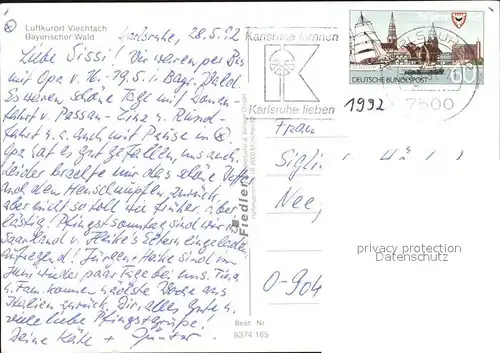 Luftkurort Viechtach
Bayerischer Wald
Karlsruhe, 28.5.92
Liebe Sissi! Wir waren per Bus
mit Opa v. 16.-19.5. i. Bayr. Wald
Es waren schöne Tage mit Donau-
fahrt v. Passau - Linz u. Rund-
fahrt u. a. auch mit Pause in
Opa hat es gut gefallen, uns auch.
leider brachte mir das schöne Wetter
auch den Heuschnupfen zurück,
aber nicht so toll wie früher, aber
lästig! Pfingstsonntag sind wir i.
Saarland v. Heike's Eltern eingeladen,
aufregend! Jürgen + Heike sind im
Juni wieder paar Tage bei uns. Tina
u. Fam. kommen nächste Woche aus
Italien zurück. Dir alles Gute u.
viele liebe Pfingstgrüße!
Deine Käte + Günter.
Karlsruhe können
Karlsruhe lieben
DEUTSCHE BUNDESPOST
60
7500
1992
Frau
Nee,
O-904
Fiedler
Best. Nr
8374/165
privacy protection
Datenschutz